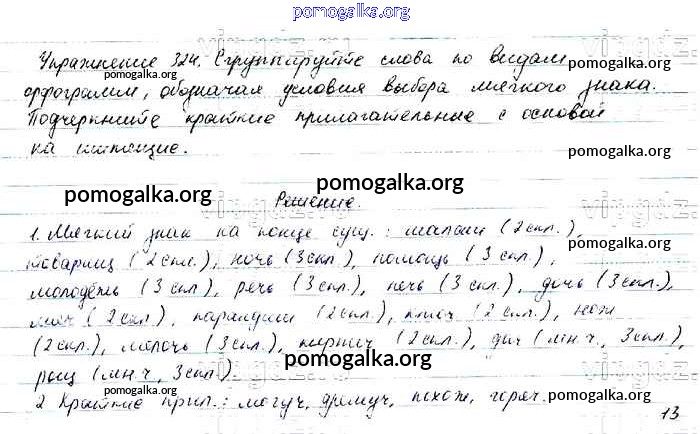 pomogalka.org
Упражнение 324. Сгруппируйте слова по видам
pomogalka.org pomogalka.org
орфограмм, обозначая условия выбора мягкого знака.
pomogalka.org
Подчеркните краткие прилагательные с основой
на шипящие.
pomogalka.org
pomogalka.org pomogalka.org
Решение.
1. Мягкий знак на конце сущ.: шалаш (2 скл.),
pomogalka.org
товарищ (2 скл.), ночь (3 скл.), помощь (3 скл.),
pomogalka.org
молодёжь (3 скл.), речь (3 скл.), печь (3 скл.), дочь (3 скл.),
мяч (2 скл.), карандаш (2 скл.), ключ (2 скл.), нож
pomogalka.org pomogalka.org
(2 скл.), мелочь (3 скл.), кирпич (2 скл.), дач (мн.ч., скл.),
pomogalka.org
рощ (мн.ч., скл.).
2 Краткие прил.: могуч, дремуч, похож, горяч.
pomogalka.org pomogalka.org
13